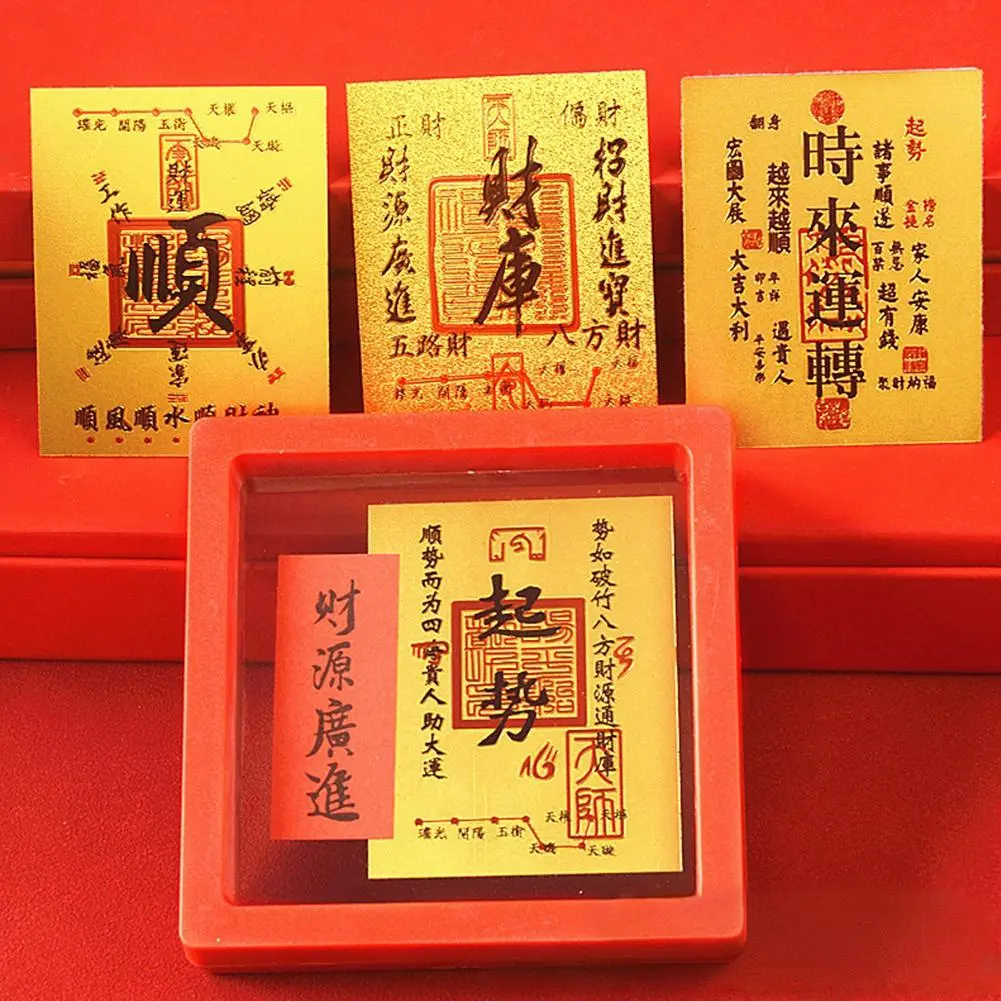 瑤光 開陽 玉衡 天權 天樞
天璇
財運
工作
順
順風順水順財神
天師
正財
偏財
財源廣進
財庫
招財進寶
五路財
八方財
瑤光 開陽 玉衡 天權 天樞
翻身
宏圖大展
越來越順
大吉大利
平安喜樂
遇貴人
時來運轉
起勢
諸事順遂
金榜
百無禁忌
超有錢
家人安康
聚財納福
財源廣進
順勢而为四
貴人助大運
起勢
勢如破竹八方財源通財庫
天師
瑤光 開陽 玉衡 天權 天樞
天璇